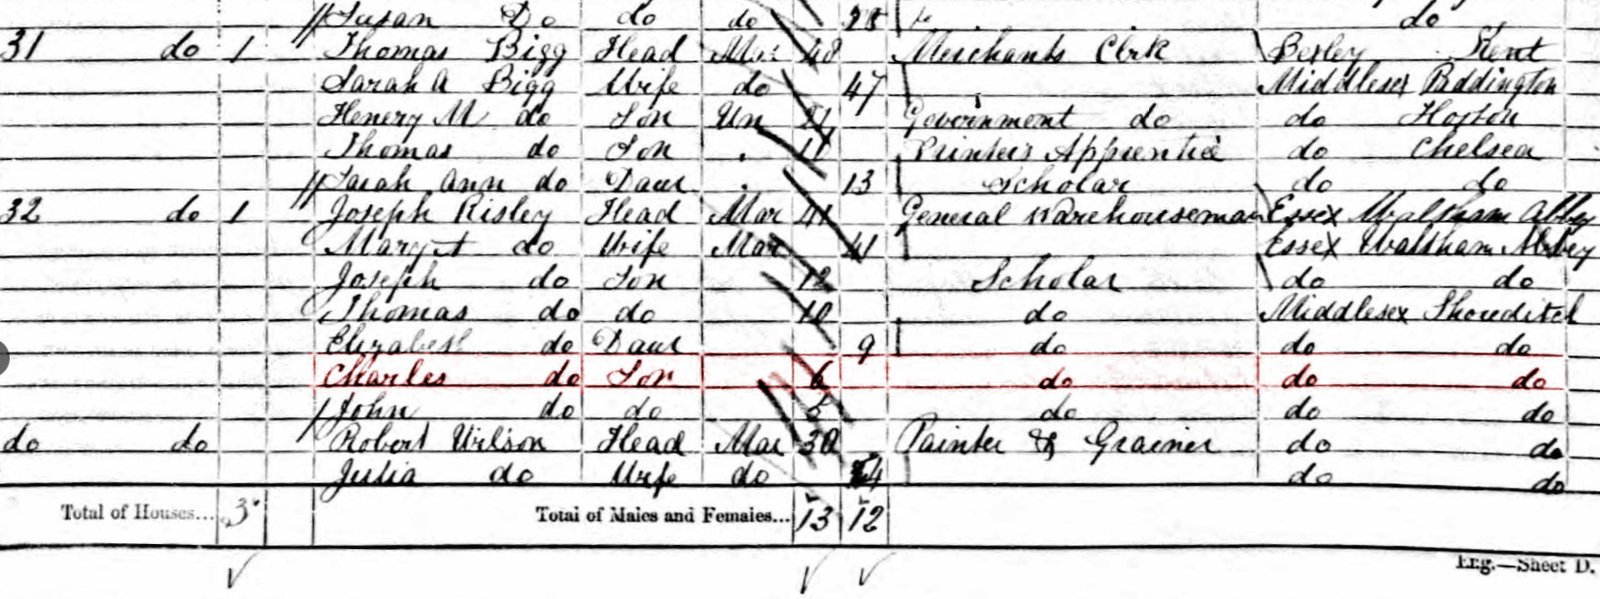 Susan Do do do 28 do
31 do 1 Thomas Bigg Head Mar 48 Merchants Clerk Bexley Kent
Sarah A Bigg Wife do 47 Middlesex Paddington
Henery M do Son Un 21 Government do do Hoxton
Thomas do Son Printers Apprentice do Chelsea
Sarah Ann do Daur 13 Scholar do do
32 do 1 Joseph Risley Head Mar 41 General Warehouseman Essex Waltham Abbey
Mary A do Wife Mar 41 Essex Waltham Abbey
Joseph do Son 12 Scholar do do
Thomas do do 10 do Middlesex Shoreditch
Elizabeth do Daur 9 do do do
Charles do Son 6 do do do
John do do 5 do do do
do do Robert Wilson Head Mar 30 Painter & Grainer do do
Julia do Wife do do do
Total of Houses... 3 Total of Males and Females... 13 12
Eng.—Sheet D.